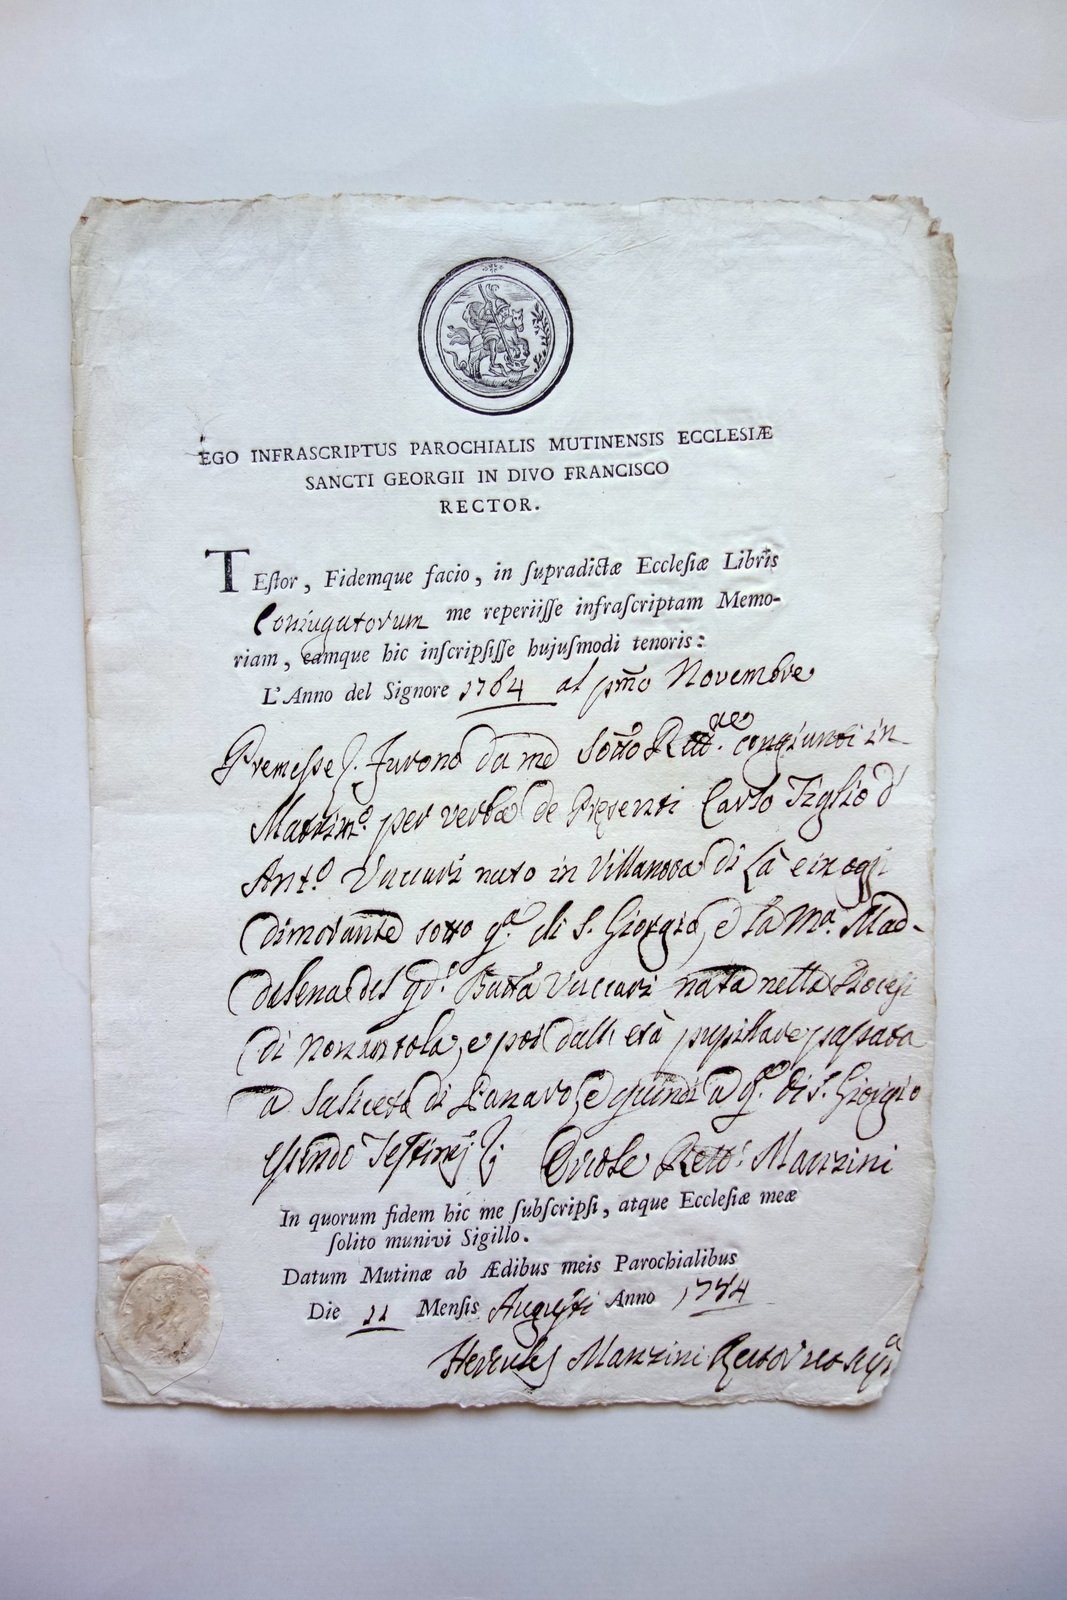 EGO INFRASCRIPTUS PAROCHIALIS MUTINENSIS ECCLESIÆ
SANCTI GEORGII IN DIVO FRANCISCO
RECTOR.
TEſtor, Fidemque facio, in ſupradictæ Eccleſiæ Libris
Coniugatorum me reperiiſſe infraſcriptam Memo-
riam, eamque hic inſcripſiſſe hujuſmodi tenoris:
L'Anno del Signore 1764 al pmo Novembre
Premesse furono da me Sotto congiunti in
Matrimo. per verba de Presenti Carlo Figlio d'
Anto. Vaccari nato in Villanova di Là e in oggi
dimorante sotto qa. di S. Giorgio, e la Ma. Mad-
dalena del qd. Batta Vaccari nata nella Diocesi
di Nonantola, e poi dall' età pupillare passata
a Saliceta di Panaro, e quindi a qa. di S. Giorgio
essendo Testimj Ercole Rett. Manzini
In quorum fidem hic me ſubſcripſi, atque Eccleſiæ meæ
ſolito munivi Sigillo.
Datum Mutinæ ab Ædibus meis Parochialibus
Die 11 Menſis Augusti Anno 1784
Hercules Manzini Rector